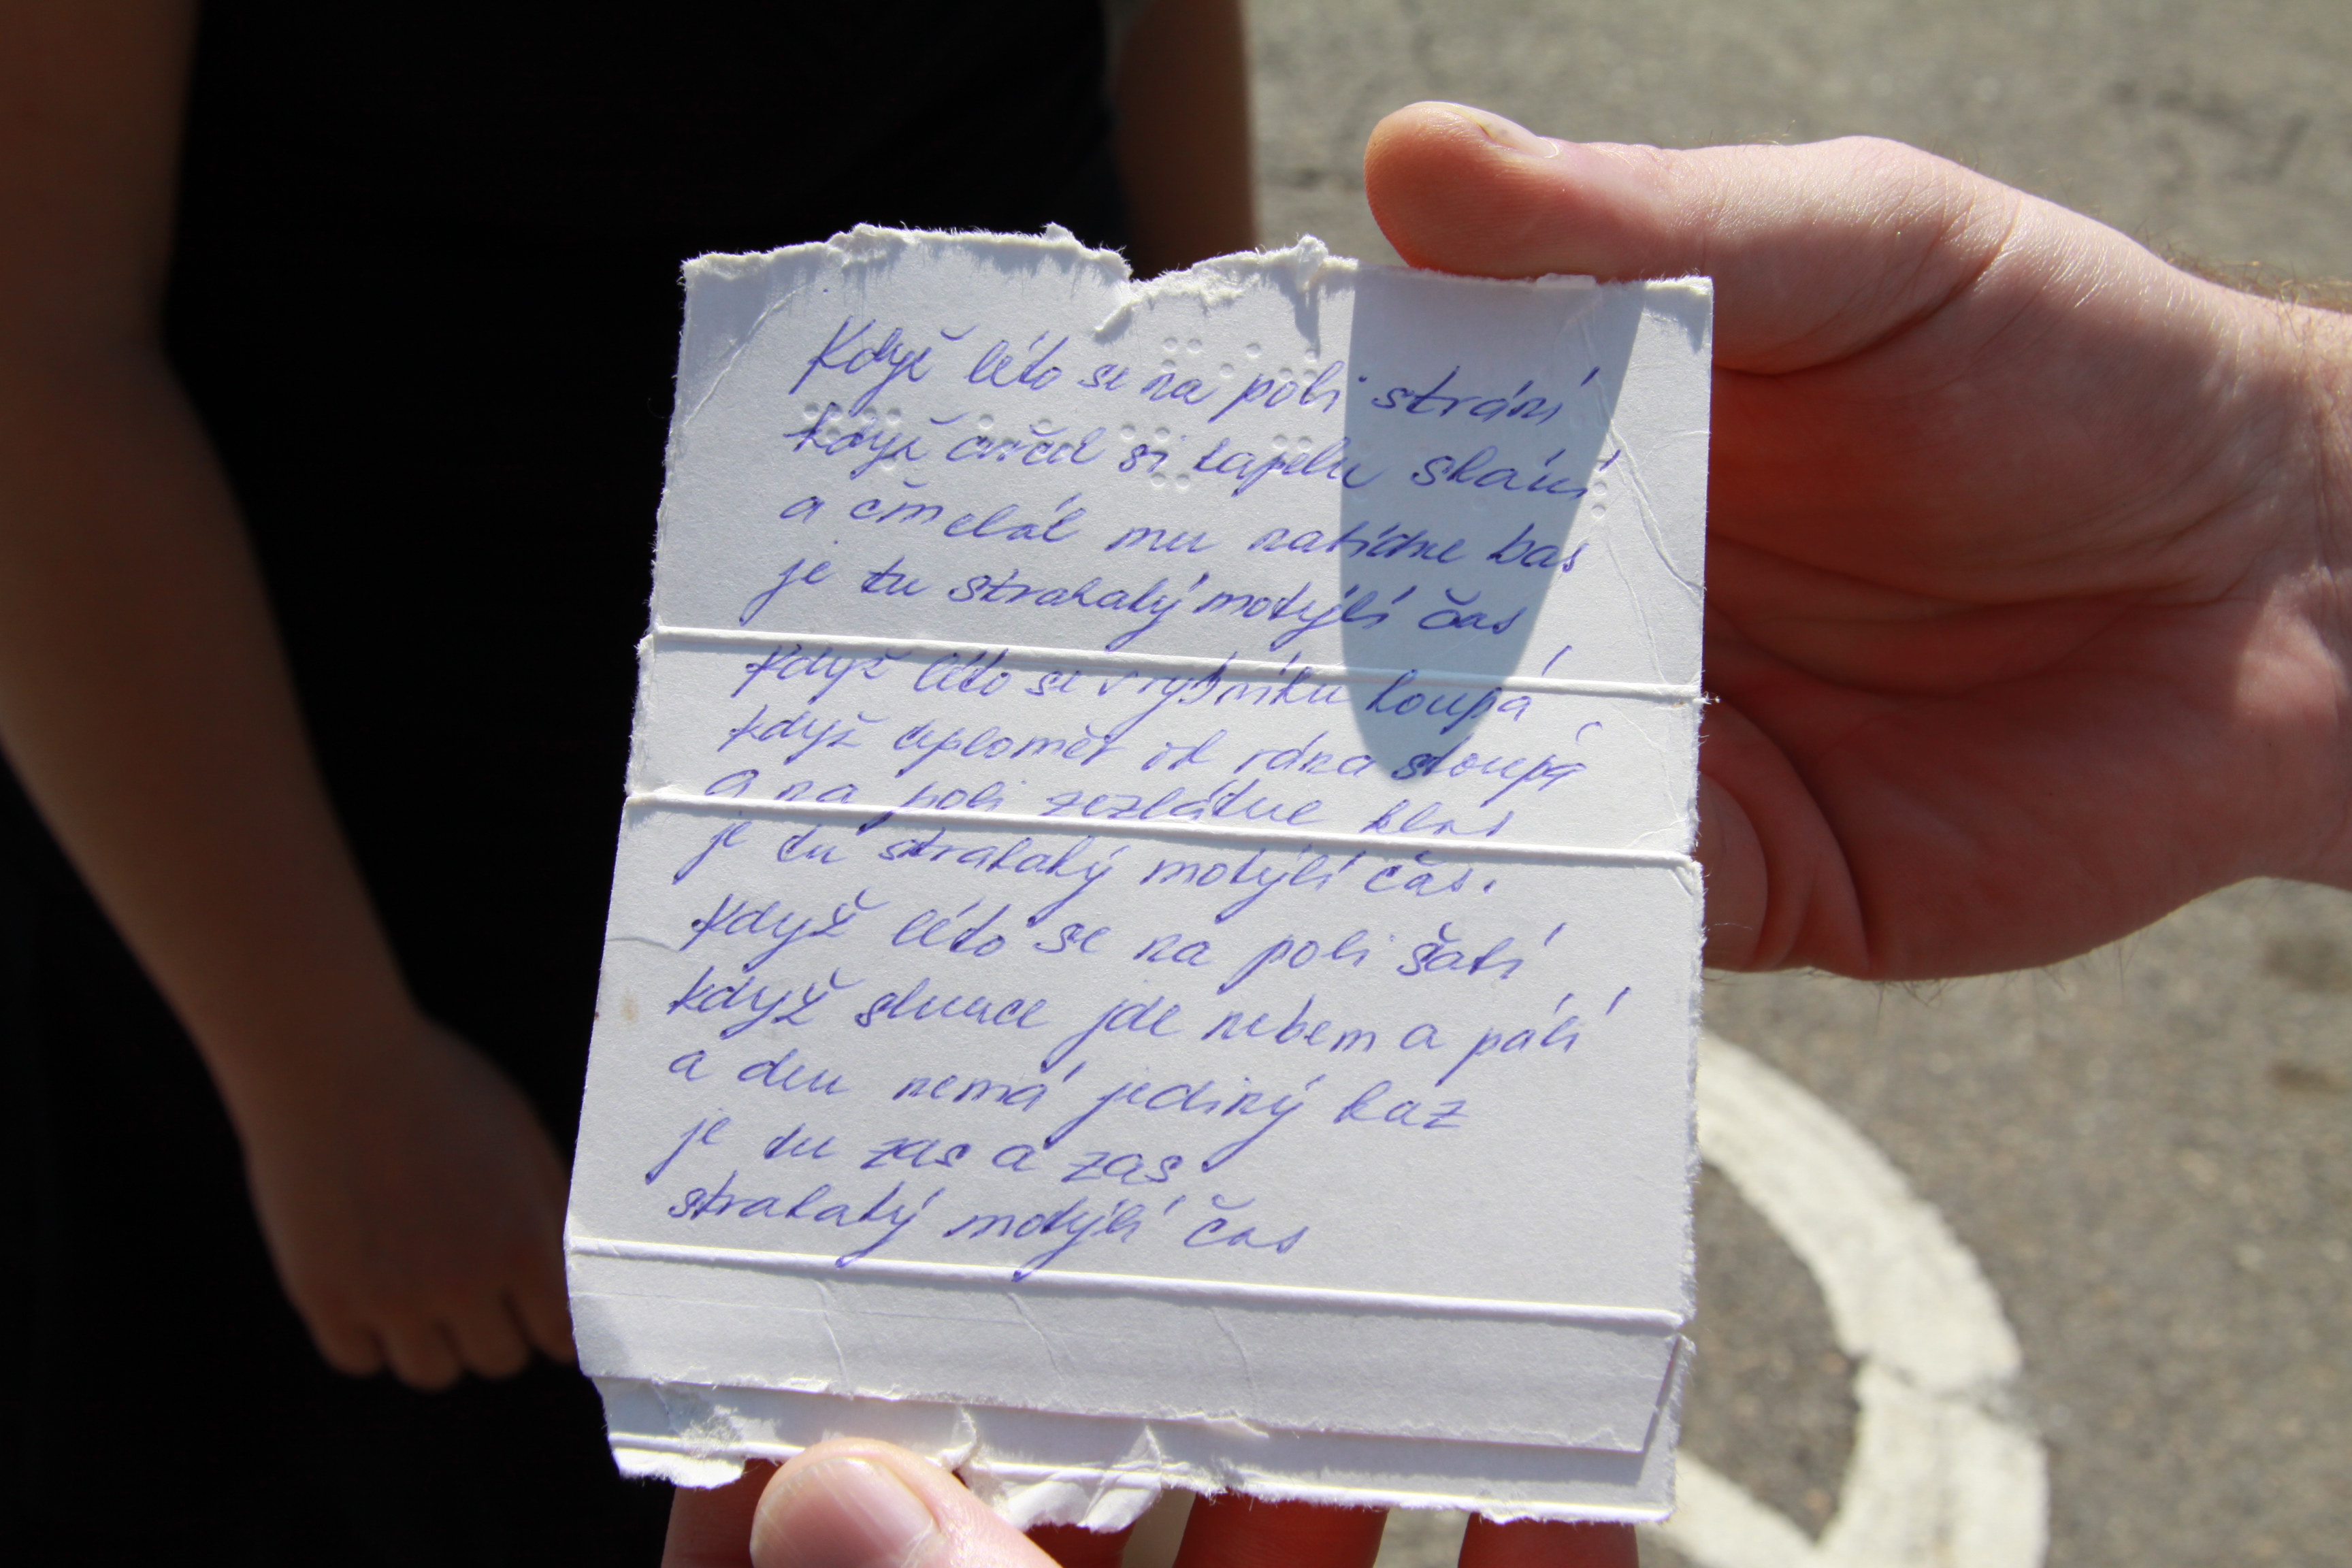 Když léto se na poli strání
když cvrček si kapelu shání
a čmelák mu natáhne bas
je tu strakatý motýlí čas
Když léto se v rybníku koupá
když teploměr od rána stoupá
a na poli zezlátne klas
je tu strakatý motýlí čas.
Když léto se na poli šatí
když slunce jde nebem a pálí
a den nemá jediný kaz
je tu zas a zas
strakatý motýlí čas